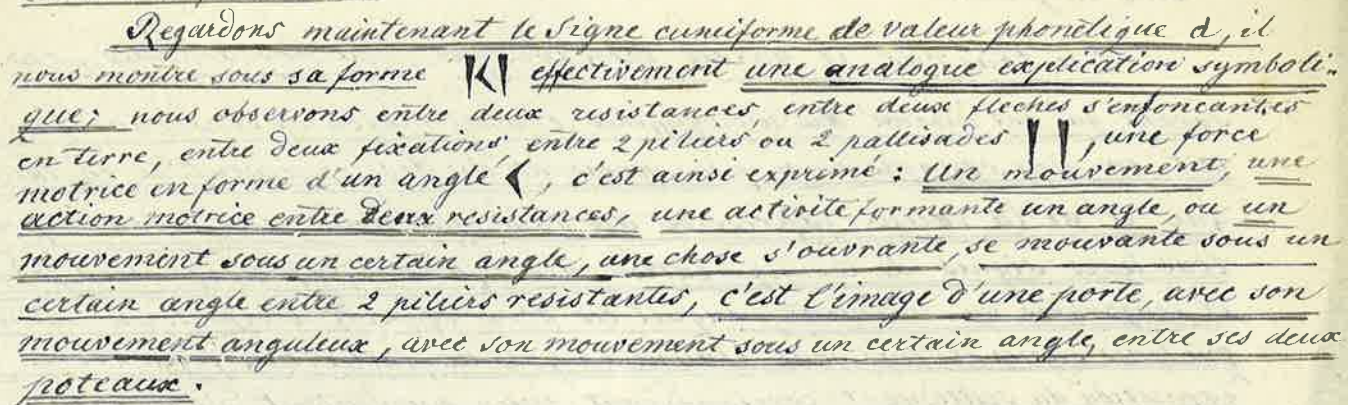 Regardons maintenant le signe cuneiforme de valeur phonétique d, il
nous montre sous sa forme 𐎭 effectivement une analogue explication symboli-
que; nous observons entre deux resistances, entre deux fleches s'enfoncantes
en terre, entre deux fixations, entre 2 piliers ou 2 pallisades 𐏑𐏑, une force
motrice en forme d'un angle 𐏓, c'est ainsi exprimé: Un mouvement, une
action motrice entre deux resistances, une activite formante un angle, ou un
mouvement sous un certain angle, une chose s'ouvrante, se mouvante sous un
certain angle entre 2 piliers resistantes, c'est l'image d'une porte, avec son
mouvement anguleux, avec son mouvement sous un certain angle, entre ses deux
poteaux.